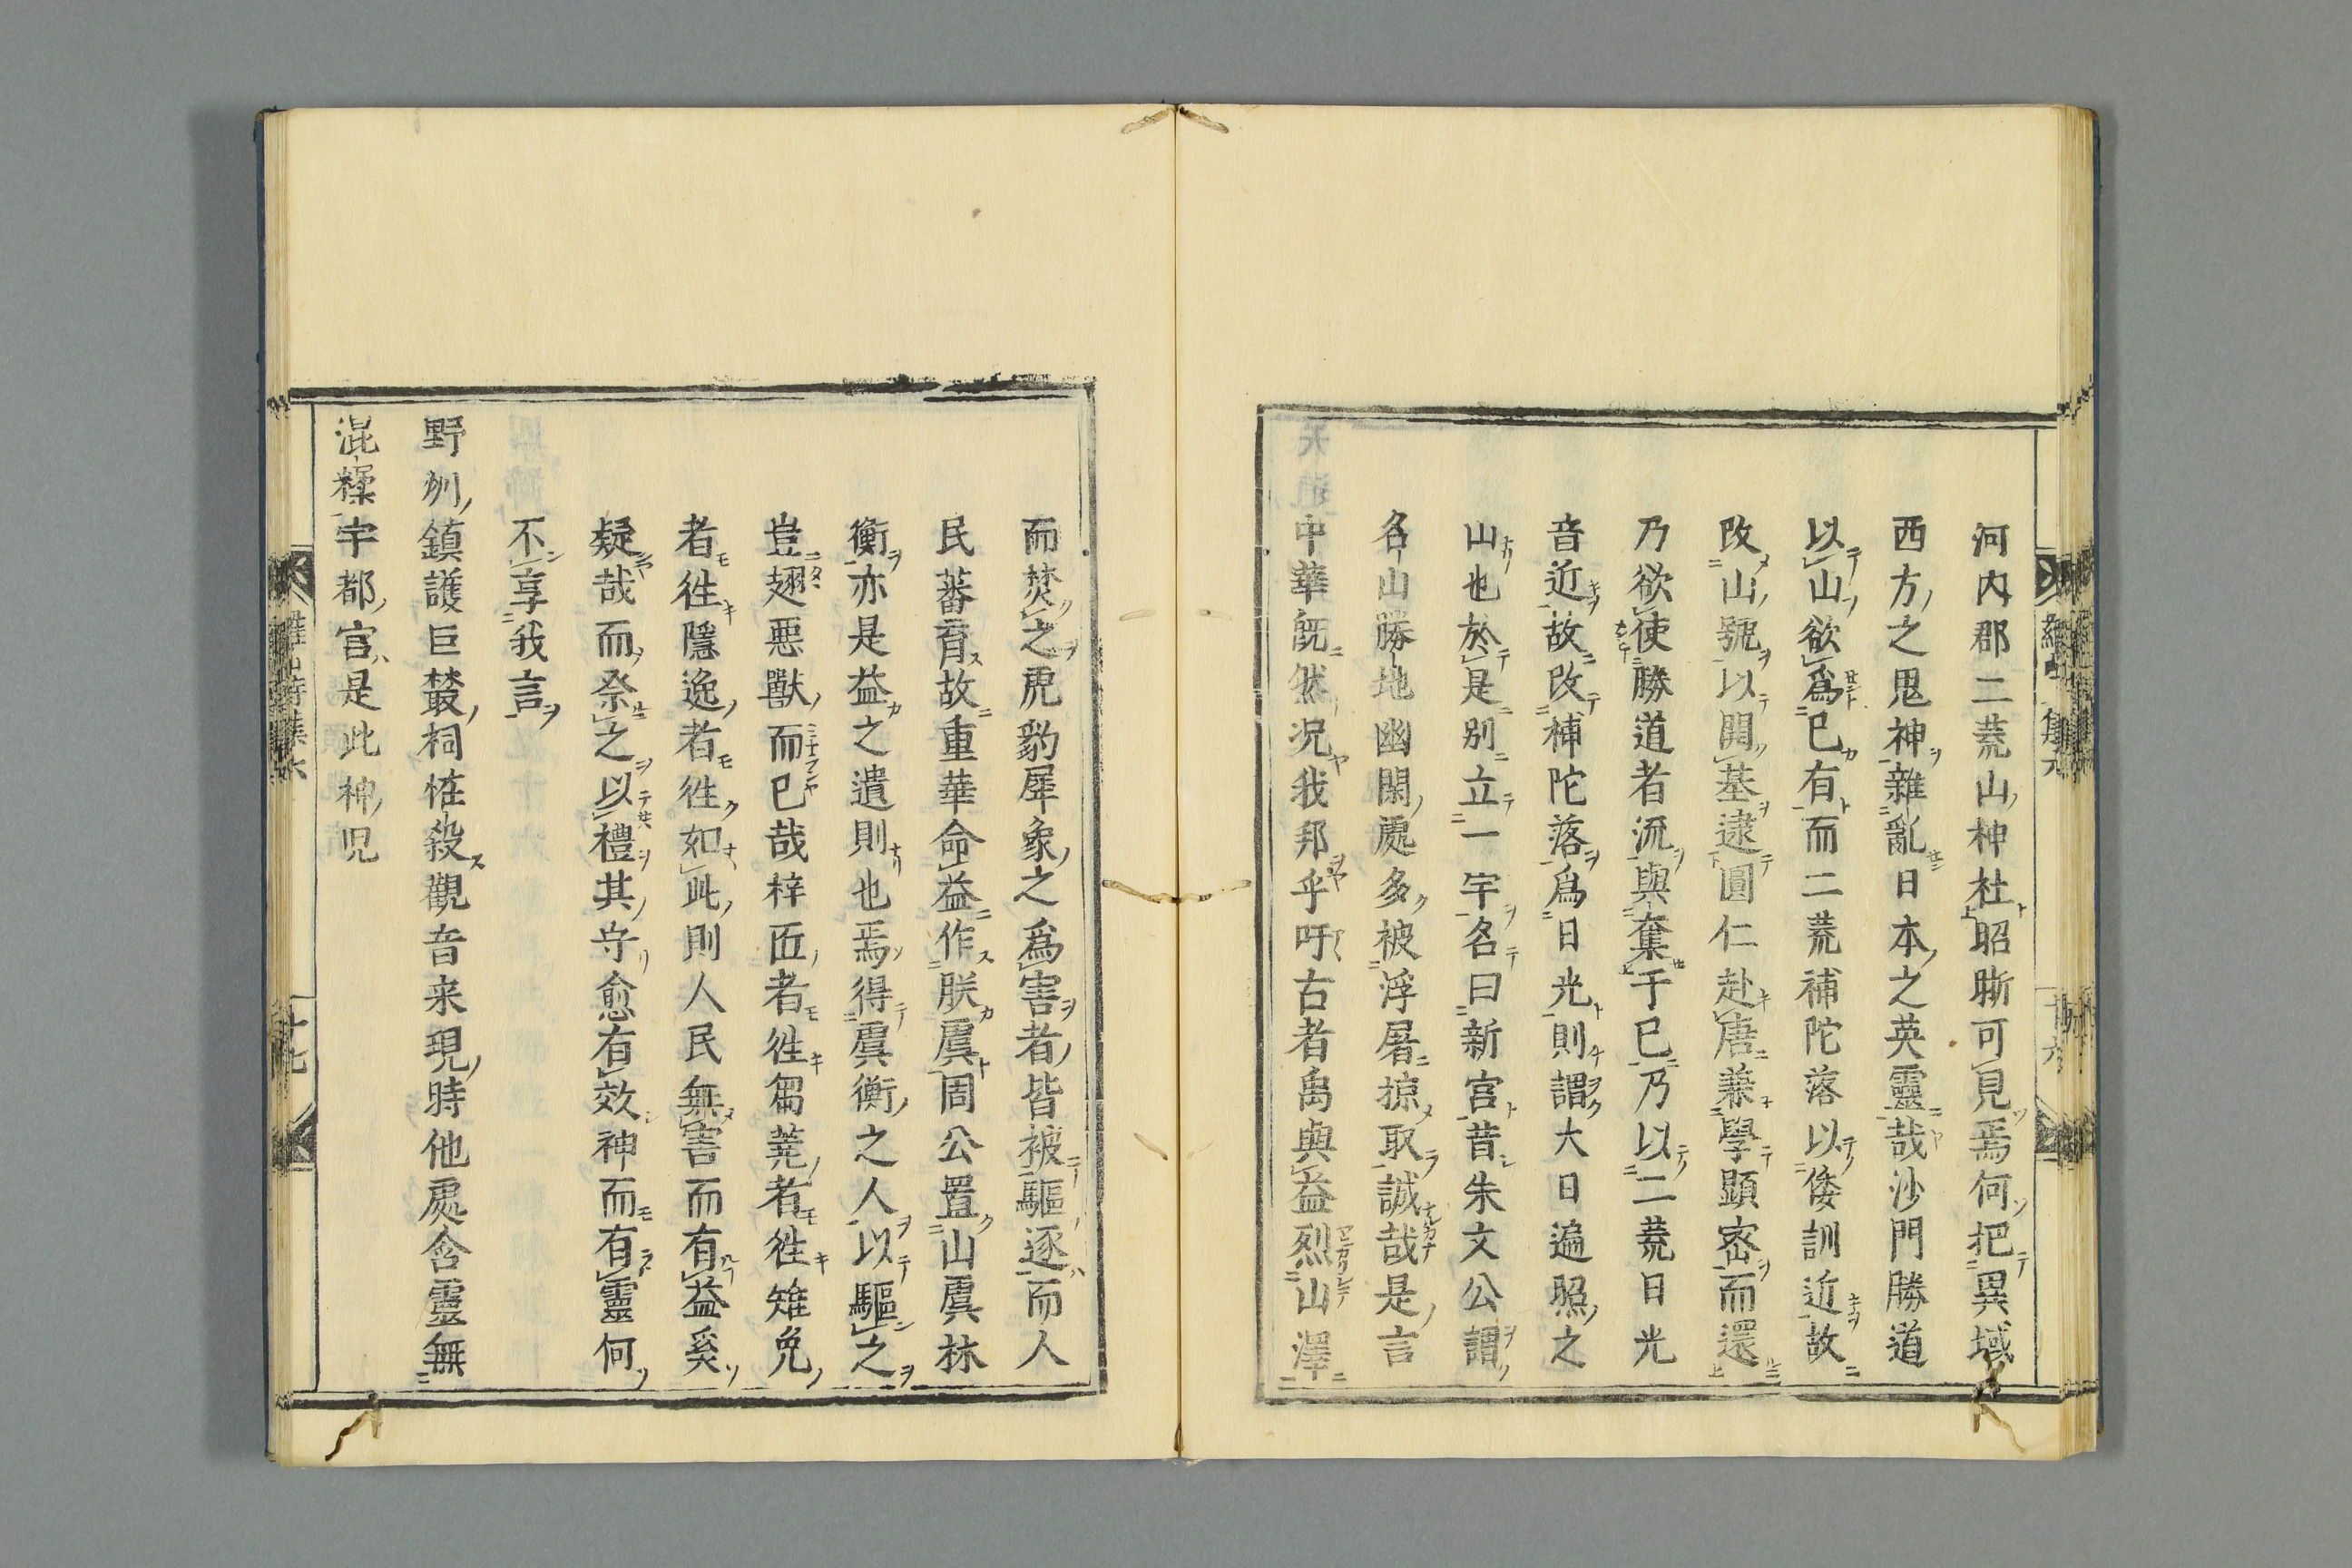 河内郡二荒山神社昭晰可見焉何把異域
西方之鬼神雜亂日本之英靈哉沙門勝道
以山欲爲已有而二荒補陀落以倭訓近故
改山號以開基逮圓仁赴唐兼學顯密而還
乃欲使勝道者流與奪集于已乃以二荒日光
音近故改補陀落爲日光則謂大日遍照之
山也於是别立一宇名曰新宮昔朱文公謂
名山勝地幽閑處多被浮屠掠取誠哉是言
中華既然况我邦乎吁古者禹與益烈山澤
而焚之虎豹犀象之爲害者皆被驅逐而人
民蕃育故重華命益作朕虞周公置山虞林
衡亦是益之遺則也焉得虞衡之人以驅之
豈翅惡獸而已哉梓匠者徃芻蕘者徃雉兔
者徃隱逸者徃如此則人民無害而有益奚
疑哉而祭之以禮其守愈有效神而有靈何
不享我言
野州鎮護巨叢祠恠殺觀音来現時他處含靈無
混糅宇都宮是此神児
羅山詩集六
十七